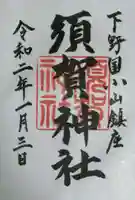 下野国小山鎮座
須賀神社
令和二年一月三日